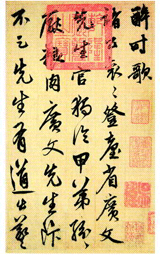 醉時歌
諸公衮々登臺省廣文
先生官獨冷甲第紛々
厭粱肉廣文先生飯
不足先生有道出羲